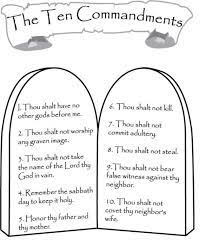 The Ten Commandments
1. Thou shalt have no
other gods before me.
2. Thou shalt not worship
any graven image.
3. Thou shalt not take
the name of the Lord thy
God in vain.
4. Remember the sabbath
day to keep it holy.
5. Honor thy father and
thy mother.
6. Thou shalt not kill.
7. Thou shalt not
commit adultery.
8. Thou shalt not steal.
9. Thou shalt not bear
false witness against thy
neighbor.
10. Thou shalt not
covet thy neighbor's
wife.